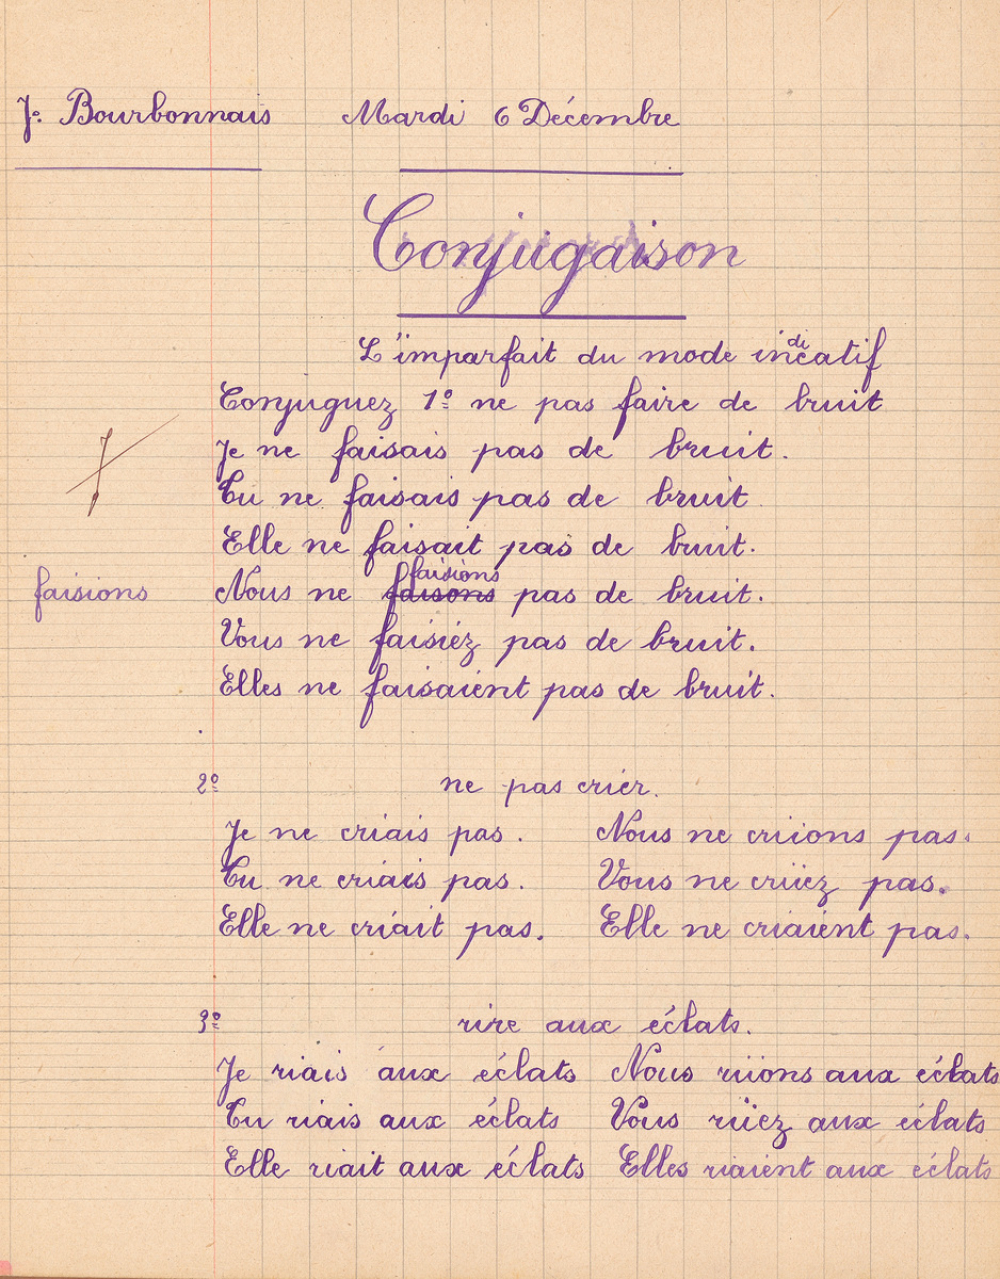 J. Bourbonnais Mardi 6 Décembre
Conjugaison
L'imparfait du mode indicatif
Conjuguez 1º ne pas faire de bruit
Je ne faisais pas de bruit.
Tu ne faisais pas de bruit
Elle ne faisait pas de bruit.
faisions
faisions Nous ne faisons pas de bruit.
Vous ne faisiez pas de bruit.
Elles ne faisaient pas de bruit.
2º ne pas crier.
Je ne criais pas. Nous ne criions pas.
Tu ne criais pas. Vous ne criiez pas.
Elle ne criait pas. Elle ne criaient pas.
3º rire aux éclats.
Je riais aux éclats Nous riions aux éclats
Tu riais aux éclats Vous riiez aux éclats
Elle riait aux éclats Elles riaient aux éclats